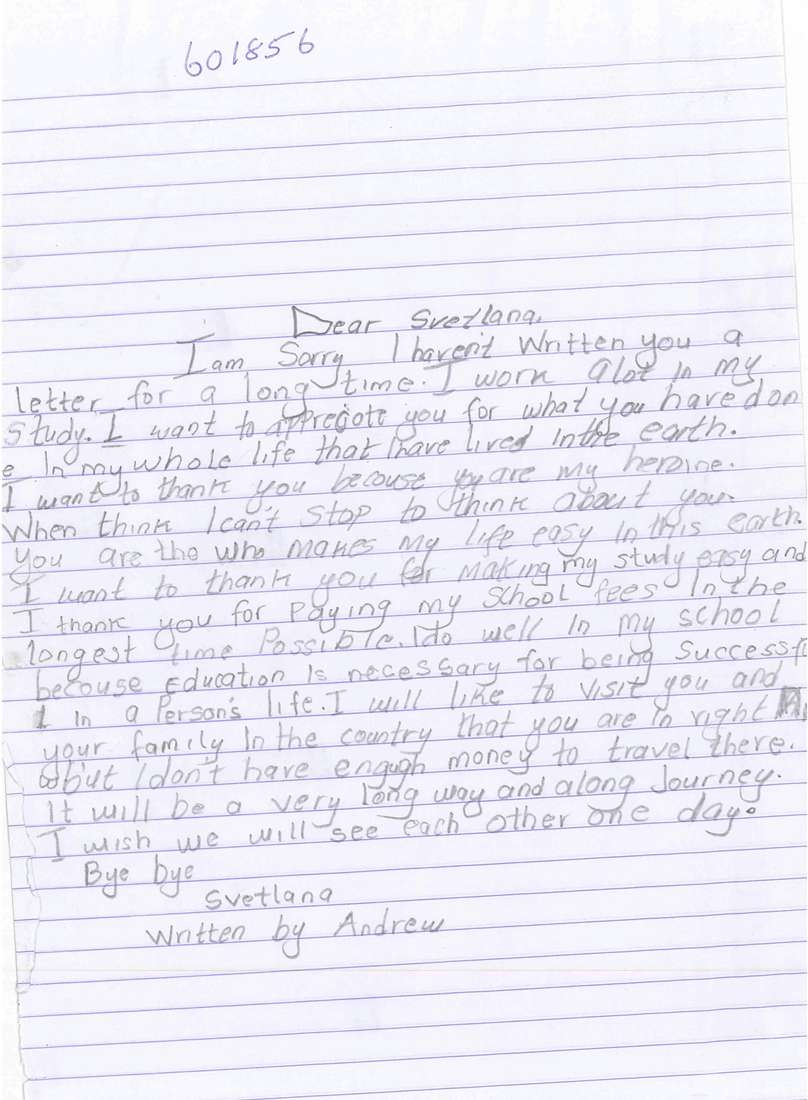 601856
Dear Svetlana.
I am Sorry I haven't Written you a
letter for a long time. I work alot in my
study. I want to appreciate you for what you have don
e In my whole life that I have lived In the earth.
I want to thank you because you are my heroine.
When think I can't stop to think about you.
You are the who makes my life easy In this earth
I want to thank you for making my study easy and
I thank you for paying my school fees In the
longest time Possible. I do well In my school
becouse Education Is necessary for being Successfu
l in a Person's life. I will like to visit you and
your family In the country that you are in right
but I don't have enough money to travel there.
It will be a very long way and along Journey.
I wish we will see each other one day.
Bye bye
Svetlana
Written by Andrew